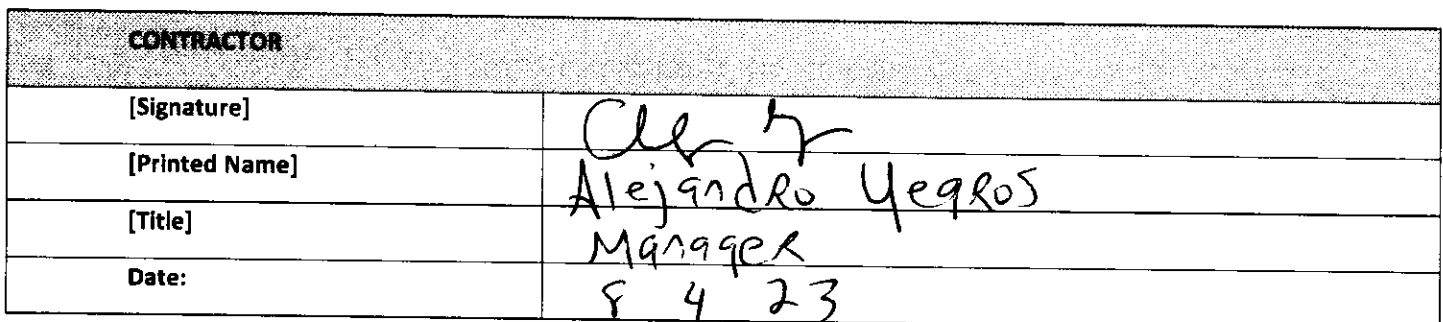 CONTRACTOR
[Signature]
[Printed Name] Alejandro Yegros
[Title] Manager
Date: 8 4 23